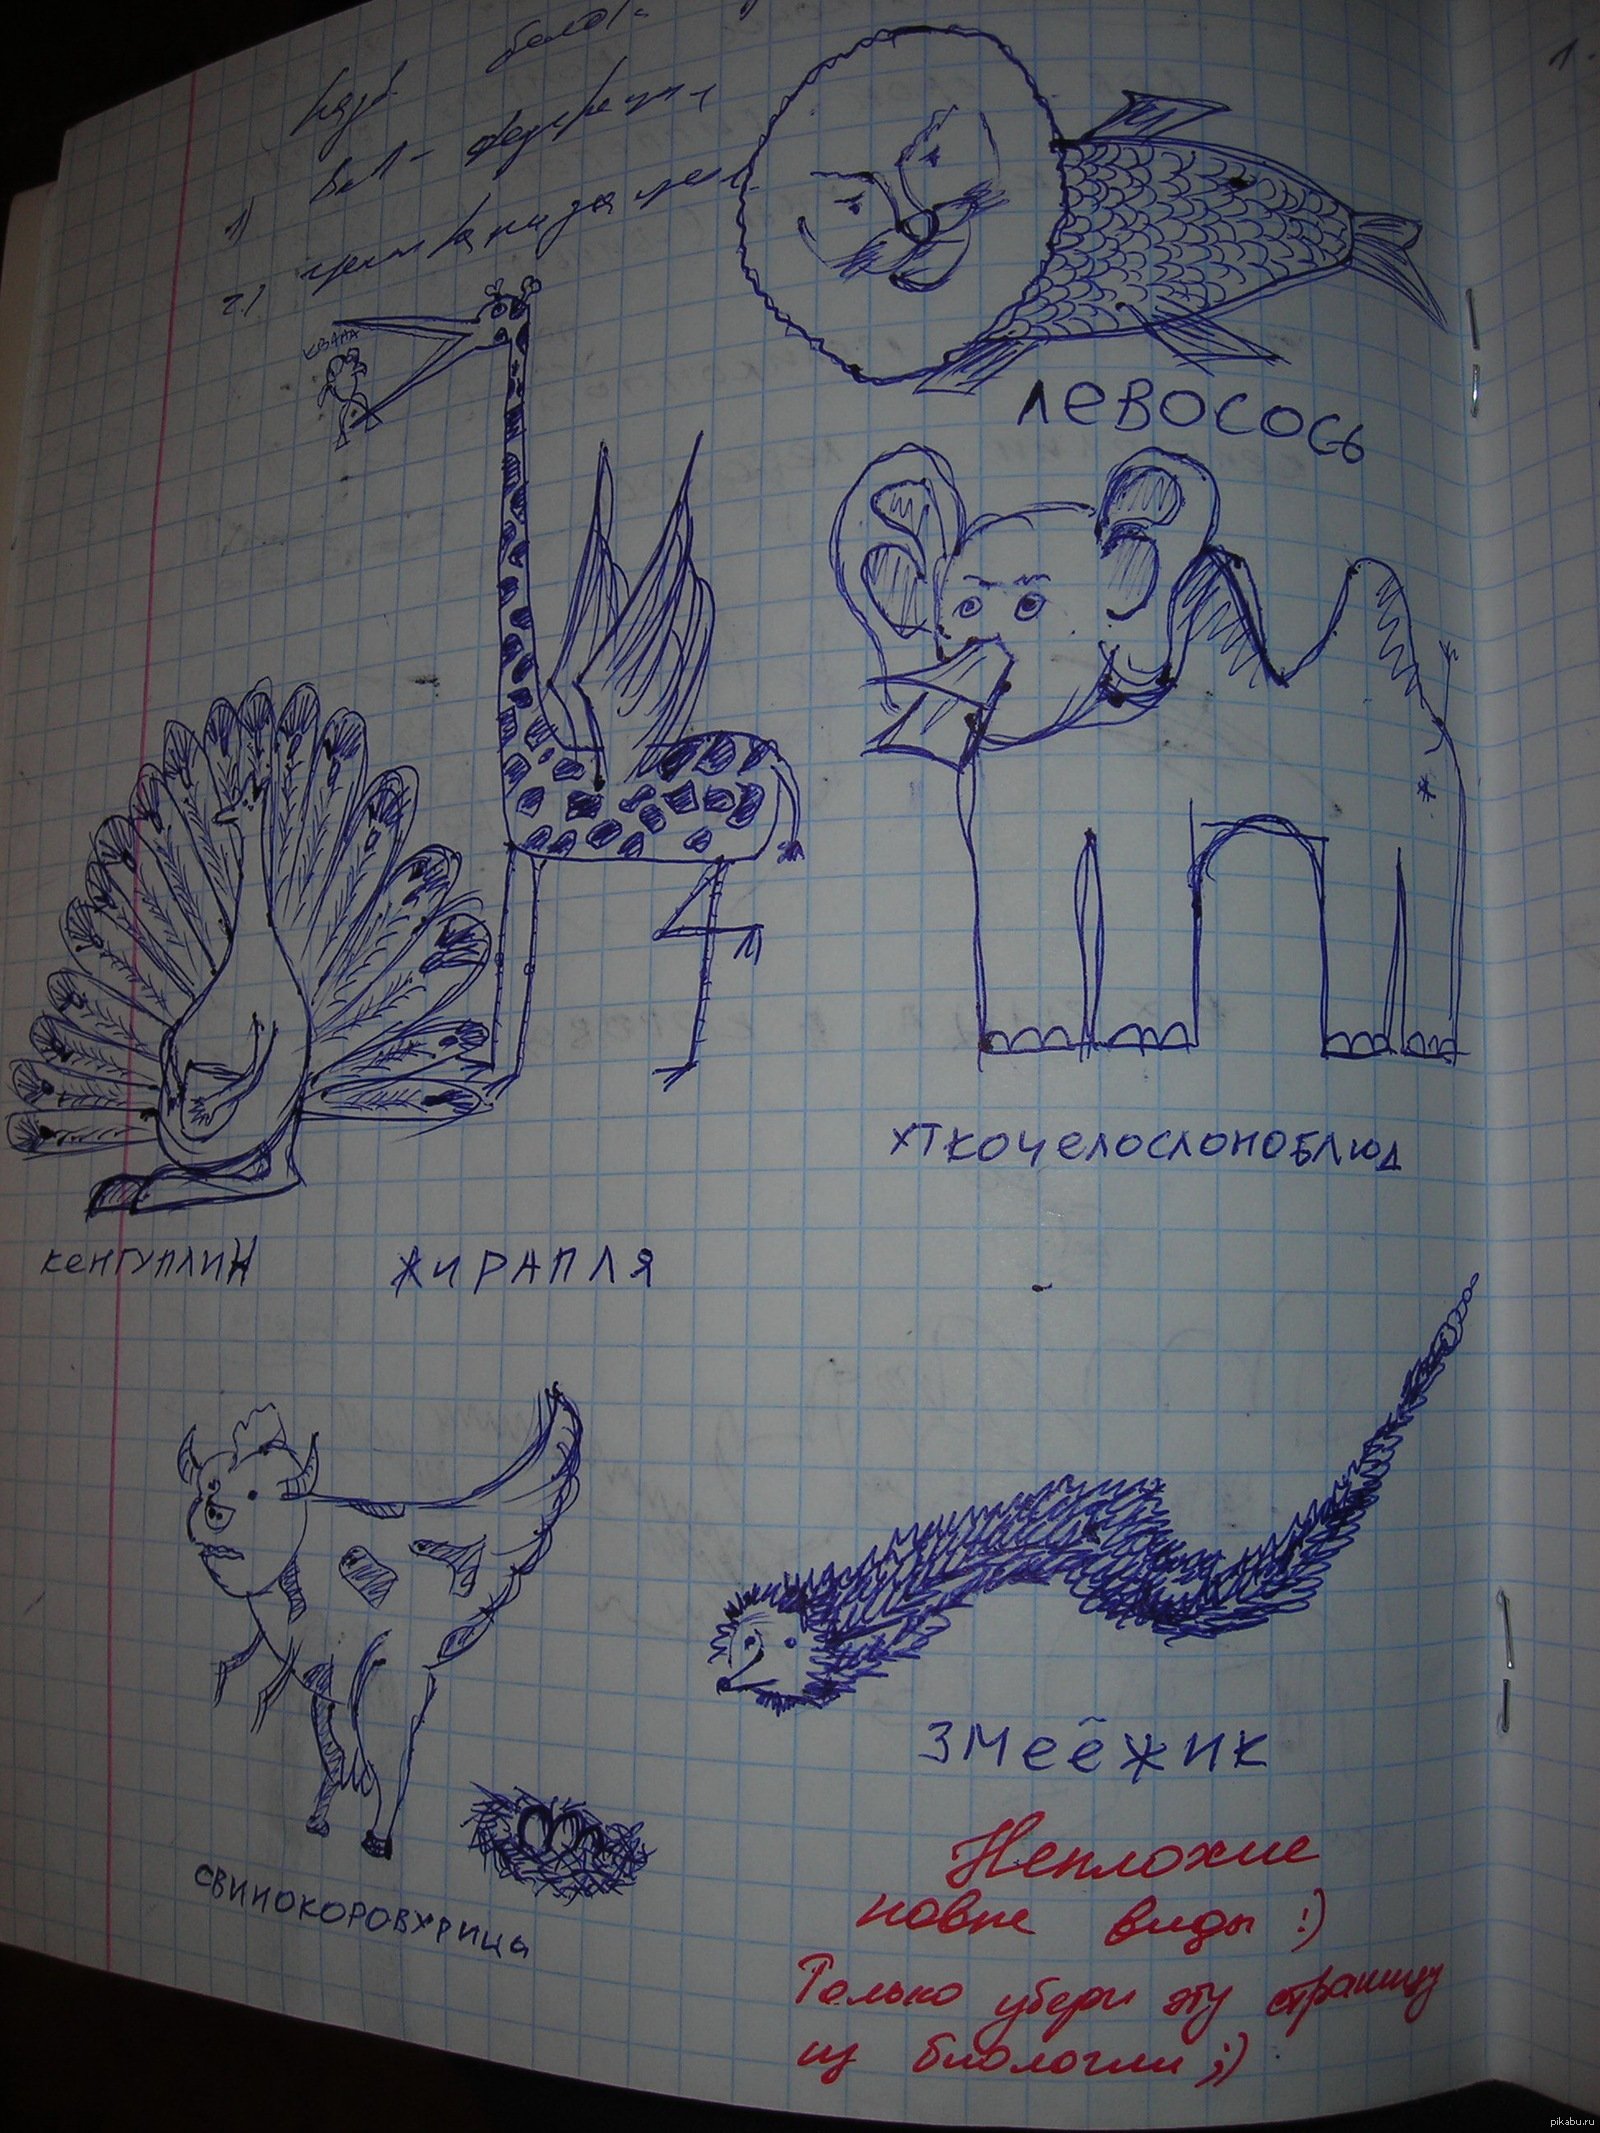 1)
2)
КВАМА
ЛЕВОСОСЬ
ХТКОЧЕЛОСЛОНОБЛЮД
КЕНГУПЛИН
ЖИРАПЛЯ
ЗМЕЁЖИК
СВИНОКОРОВУРИЦА
Неплохие
новые виды :)
Только убери эту страницу
из биологии ;)
pikabu.ru